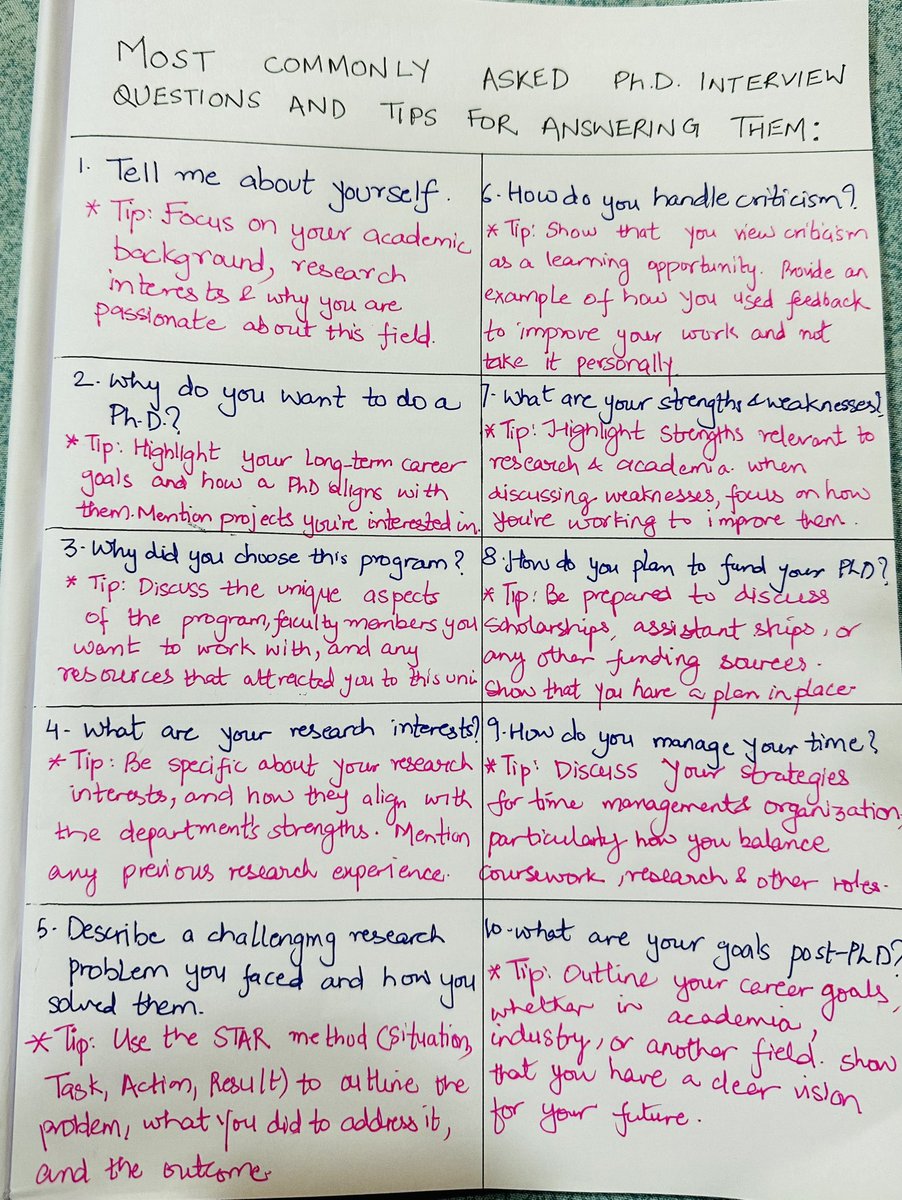 MOST COMMONLY ASKED Ph.D. INTERVIEW
QUESTIONS AND TIPS FOR ANSWERING THEM:
1. Tell me about yourself.
* Tip: Focus on your academic
background, research
interests & why you are
passionate about this field.
2. Why do you want to do a
Ph.D.?
* Tip: Highlight your long-term career
goals and how a PhD aligns with
them. Mention projects you're interested in.
3. Why did you choose this program?
* Tip: Discuss the unique aspects
of the program, faculty members you
want to work with, and any
resources that attracted you to this uni
4. What are your research interests?
* Tip: Be specific about your research
interests, and how they align with
the department's strengths. Mention
any previous research experience.
5. Describe a challenging research
problem you faced and how you
solved them.
* Tip: Use the STAR method (Situation,
Task, Action, Result) to outline the
problem, what you did to address it,
and the outcome.
6. How do you handle criticism?
* Tip: Show that you view criticism
as a learning opportunity. Provide an
example of how you used feedback
to improve your work and not
take it personally
7. What are your strengths & weaknesses?
* Tip: Highlight strengths relevant to
research & academia. when
discussing weaknesses, focus on how
you're working to improve them.
8. How do you plan to fund your PhD?
* Tip: Be prepared to discuss
scholarships, assistant ships, or
any other funding sources.
Show that you have a plan in place.
9. How do you manage your time?
* Tip: Discuss your strategies
for time management & organization,
particularly how you balance
coursework, research & other roles.
10. what are your goals post-PhD?
* Tip: Outline your career goals,
whether in academia,
industry, or another field. show
that you have a clear vision
for your future.